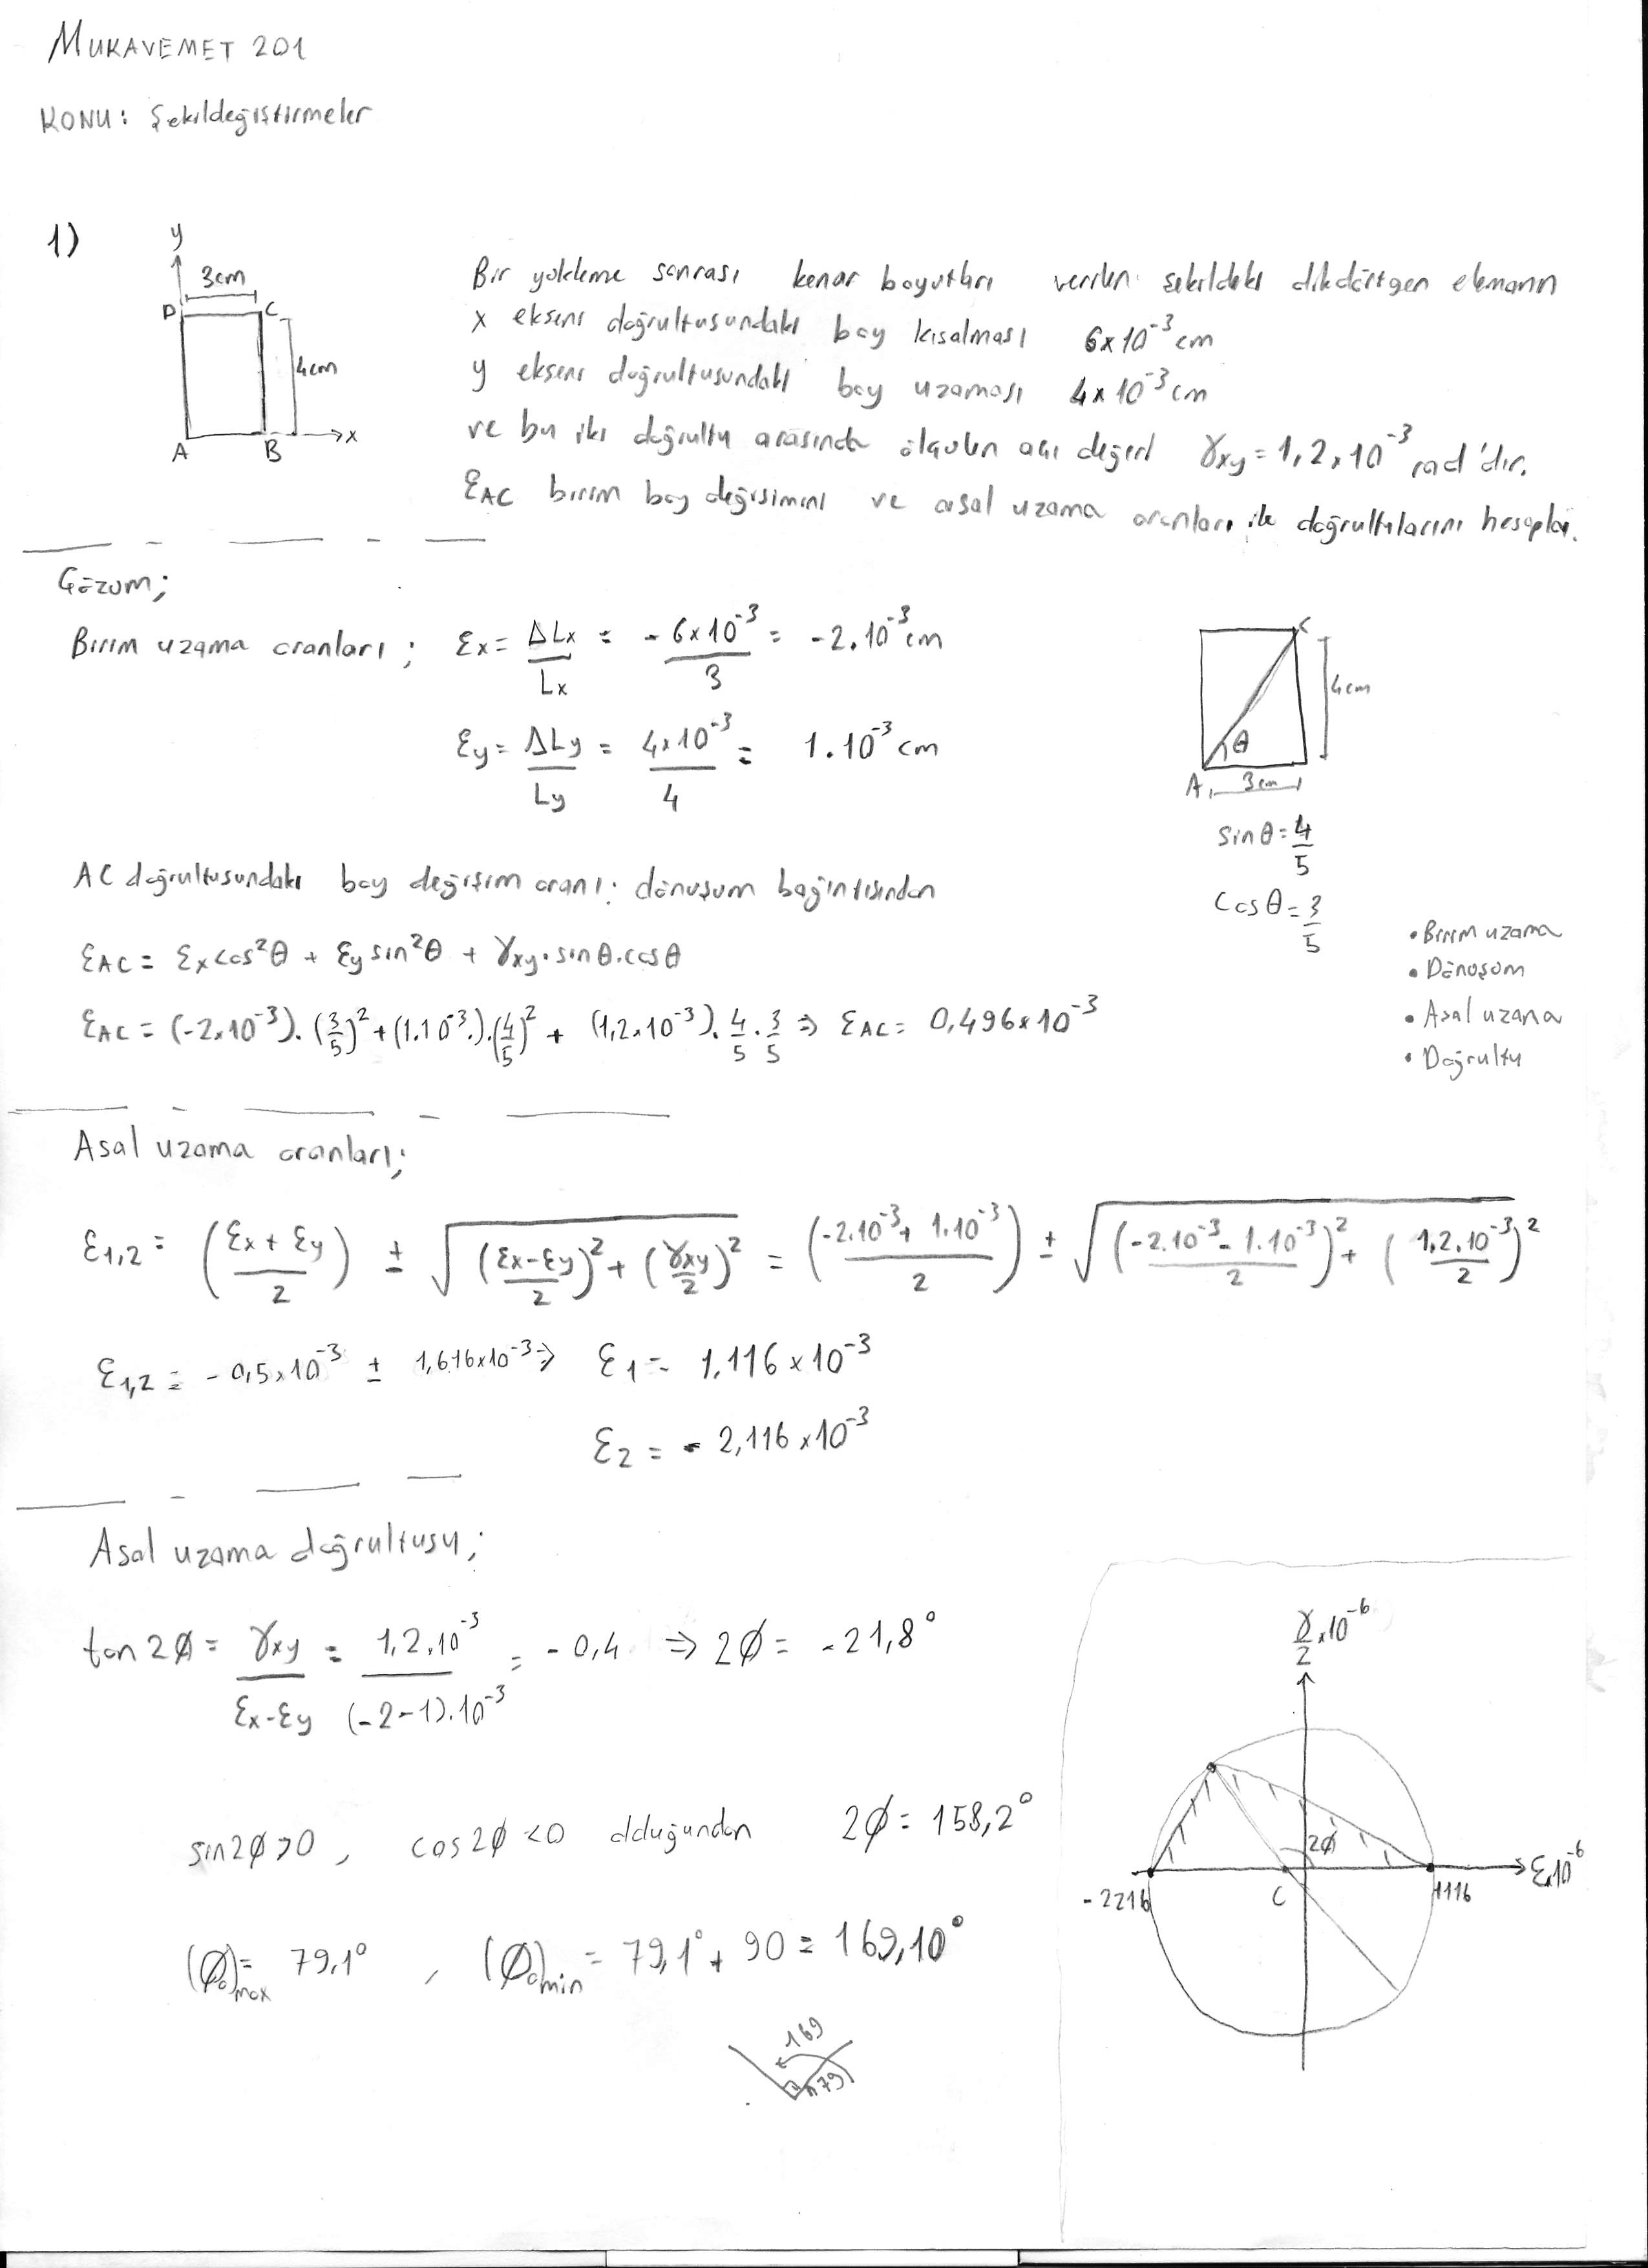 MUKAVEMET 201
KONU: Şekildeğiştirmeler
1)
y
3cm
D C
4cm
A B x
Bir yükleme sonrası kenar boyutları verilen şekildeki dikdörtgen elemanın
x ekseni doğrultusundaki boy kısalması 6x10⁻³ cm
y ekseni doğrultusundaki boy uzaması 4x10⁻³ cm
ve bu iki doğrultu arasında ölçülen açı değeri γxy = 1,2x10⁻³ rad'dır.
εAC birim boy değişimini ve asal uzama oranları ile doğrultularını hesapla.
Çözüm;
Birim uzama oranları; εx = ΔLx/Lx = -6x10⁻³/3 = -2.10⁻³ cm
εy = ΔLy/Ly = 4x10⁻³/4 = 1.10⁻³ cm
C
4cm
θ
A 3cm
sinθ = 4/5
cosθ = 3/5
AC doğrultusundaki boy değişim oranı; dönüşüm bağıntısından
εAC = εx cos²θ + εy sin²θ + γxy.sinθ.cosθ
εAC = (-2x10⁻³).(3/5)² + (1.10⁻³).(4/5)² + (1,2x10⁻³).4/5.3/5 ⇒ εAC = 0,496x10⁻³
• Birim uzama
• Dönüşüm
• Asal uzama
• Doğrultu
Asal uzama oranları;
ε1,2 = ((εx + εy)/2) ± √(((εx-εy)/2)² + (γxy/2)²) = ((-2.10⁻³+1.10⁻³)/2) ± √(((-2.10⁻³-1.10⁻³)/2)² + (1,2.10⁻³/2)²)
ε1,2 = -0,5x10⁻³ ± 1,616x10⁻³ ⇒ ε1 = 1,116x10⁻³
ε2 = -2,116x10⁻³
Asal uzama doğrultusu;
tan2Ø = γxy/(εx-εy) = 1,2.10⁻³/((-2-1).10⁻³) = -0,4 ⇒ 2Ø = -21,8°
sin2Ø>0, cos2Ø<0 olduğundan 2Ø = 158,2°
(Ø₀)max = 79,1° , (Ø₀)min = 79,1° + 90 = 169,10°
169
79
γ/2 x10⁻⁶
2Ø
εx10⁻⁶
-2216 C 1116